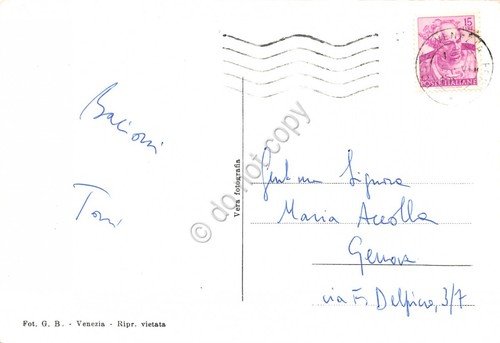 15
POSTE ITALIANE
Bacioni
Toni
Vera fotografia
Gent.ma Signora
Maria Accolla
Genova
via F. Delpino, 3/7
Fot. G. B. - Venezia - Ripr. vietata
do not copy